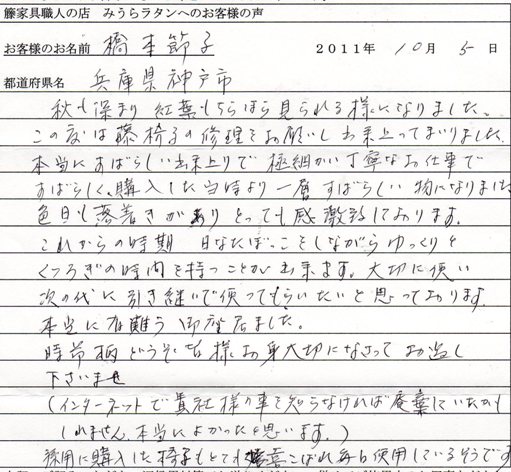 籐家具職人の店 みうらラタンへのお客様の声
お客様のお名前 橋本節子 2011年 10月 5日
都道府県名 兵庫県神戸市
秋も深まり 紅葉もちらほら見られる様になりました。
この度は藤椅子の修理をお願いし出来上ってまいりました
本当にすばらしい出来上りで極細かい丁寧なお仕事で
すばらしく、購入した当時より一層すばらしい物になりました
色目も落着きがありとっても感激致しております。
これからの時期 日なたぼっこをしながらゆっくりと
くつろぎの時間を持つことが出来ます。大切に使い
次の代に引き継いで使ってもらいたいと思っております
本当に有難う御座居ました。
時節柄どうぞ皆様お身大切になさってお過し
下さいませ
(インターネットで貴社様の事を知らなければ廃棄していたかも
しれません、本当によかったと思います。)
購入した椅子もとても喜こばれ毎日使用しているそうです